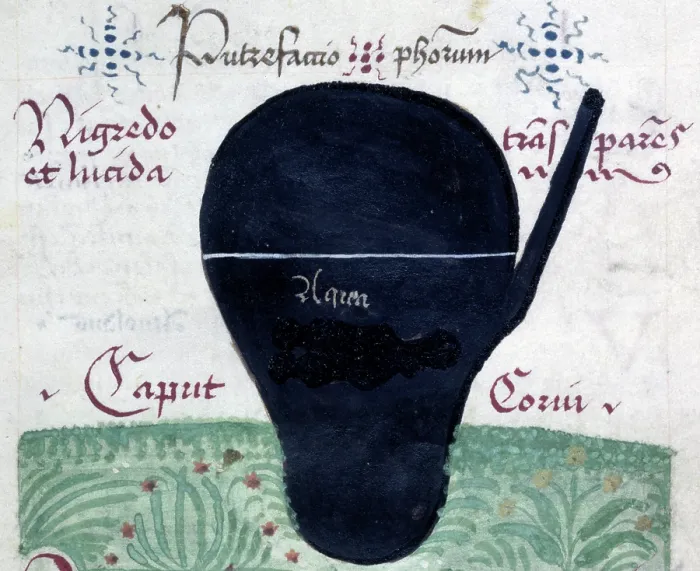 Putrefaccio phõrum
Nigredo
et lucida
trãs parẽs
Caput Corui